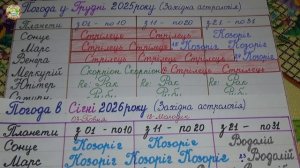 Погода у Грудні 2025 року (Західна астрологія)
Планети з 01 - по 10 з 11 - по 20 з 21 - по 31
Сонце Стрілець Стрілець Козоріг
Марс Стрілець Стрілець Козоріг Козоріг
Венера Стрілець Стрілець Стрілець Козоріг
Меркурій Скорпіон Скорпіон Стрілець Стрілець
Юпітер Re: Рак Re: Рак Re: Рак
Погода в Січні 2026 року (Західна астрологія)
Планети з 01 - по 10 з 11 - по 20 з 21 - по 31
Сонце Козоріг Козоріг Водолій
Марс Козоріг Козоріг Козоріг Водолій